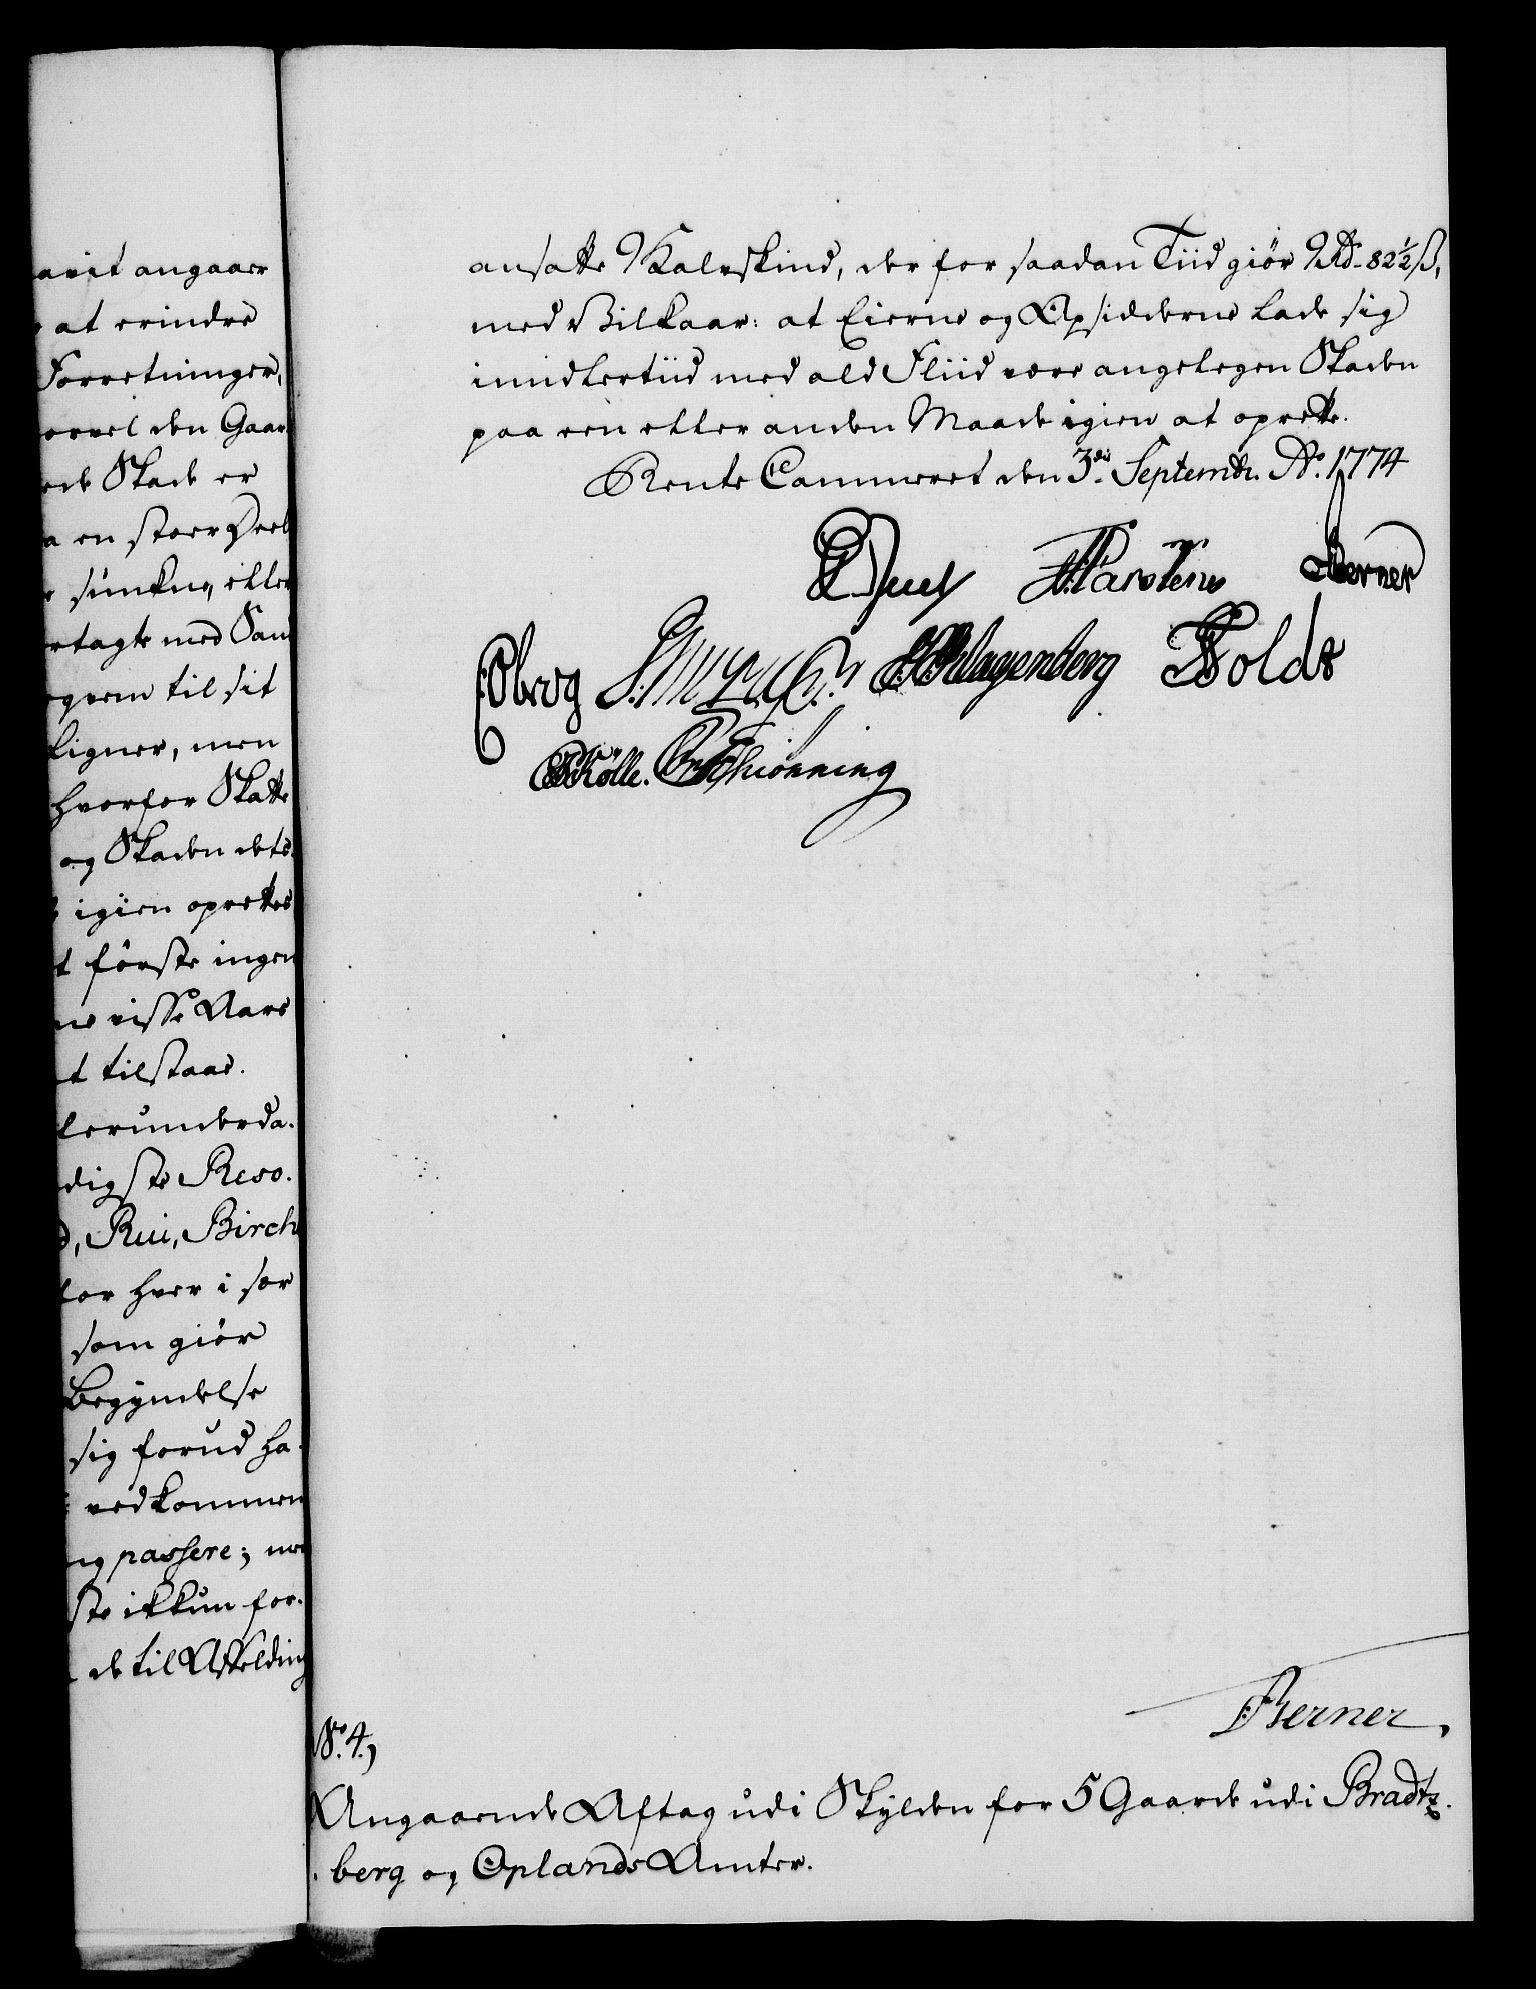 avit angaaer
at erindre
Forretninger,
orvel den Gaar
ede Skade er
a en stoer Deel
siunkne, eller
rtagte med San
ogerne til sit
ligner, men
hvorfor Skatte
og Skaden dets
igien oprettes
t første ingen
ne visse Aars
t tilstaaes.
lerunderda-
digste Reso-
d, Rui, Birch
for hver i sær
som giør
Begyndelse
sig forud ha-
vedkommen
ng passere; men
ste ikkun for-
de til Afvelding
ansatte Kalvskind, der for saadan Tiid giør Rd. 82½ ß,
med Vilkaar: at Eierne og Opsidderne lade sig
imidlertiid med ald Fliid være angelegen Skaden
paa een eller anden Maade igien at oprette.
Rente Cammeret den 3die Septembr. Ao. 1774
Juel Carstens Berner
Obrog Schlagenberg Holdt
Kølle. Schiønning
Berner,
No. 4,
Angaaende Aftag udi Skylden for 5 Gaarde udi Bradtz-
berg og Oplands Amter.